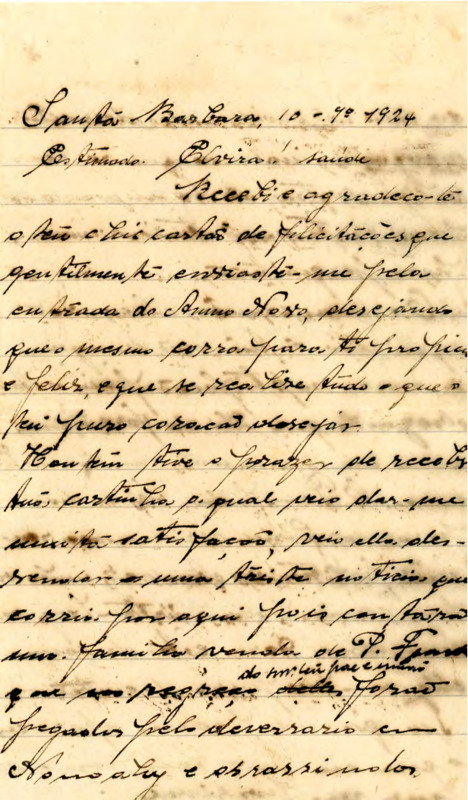 Santa Barbara, 10-1º 1924
Estimado Elvira! saúde
Recebi e agradeco-te
o teu chic cartão de filicitações que
gentilmente enviaste-me pela
entrada do Anno Novo, desejando
que o mesmo corra para ti propicio
e feliz, e que se realise tudo o que o
teu puro coracaõ desejar.
Hontem tive o prazer de receber
tua cartinha a qual veio dar-me
muita satisfação, veio ella des-
vendar uma triste noticia que
corria por aqui pois contara
uma familia venda de P.
do snr. teu pae e mano
que no regreço delles foraõ
pegados pelo deversario em
Nonoahy e assassinados